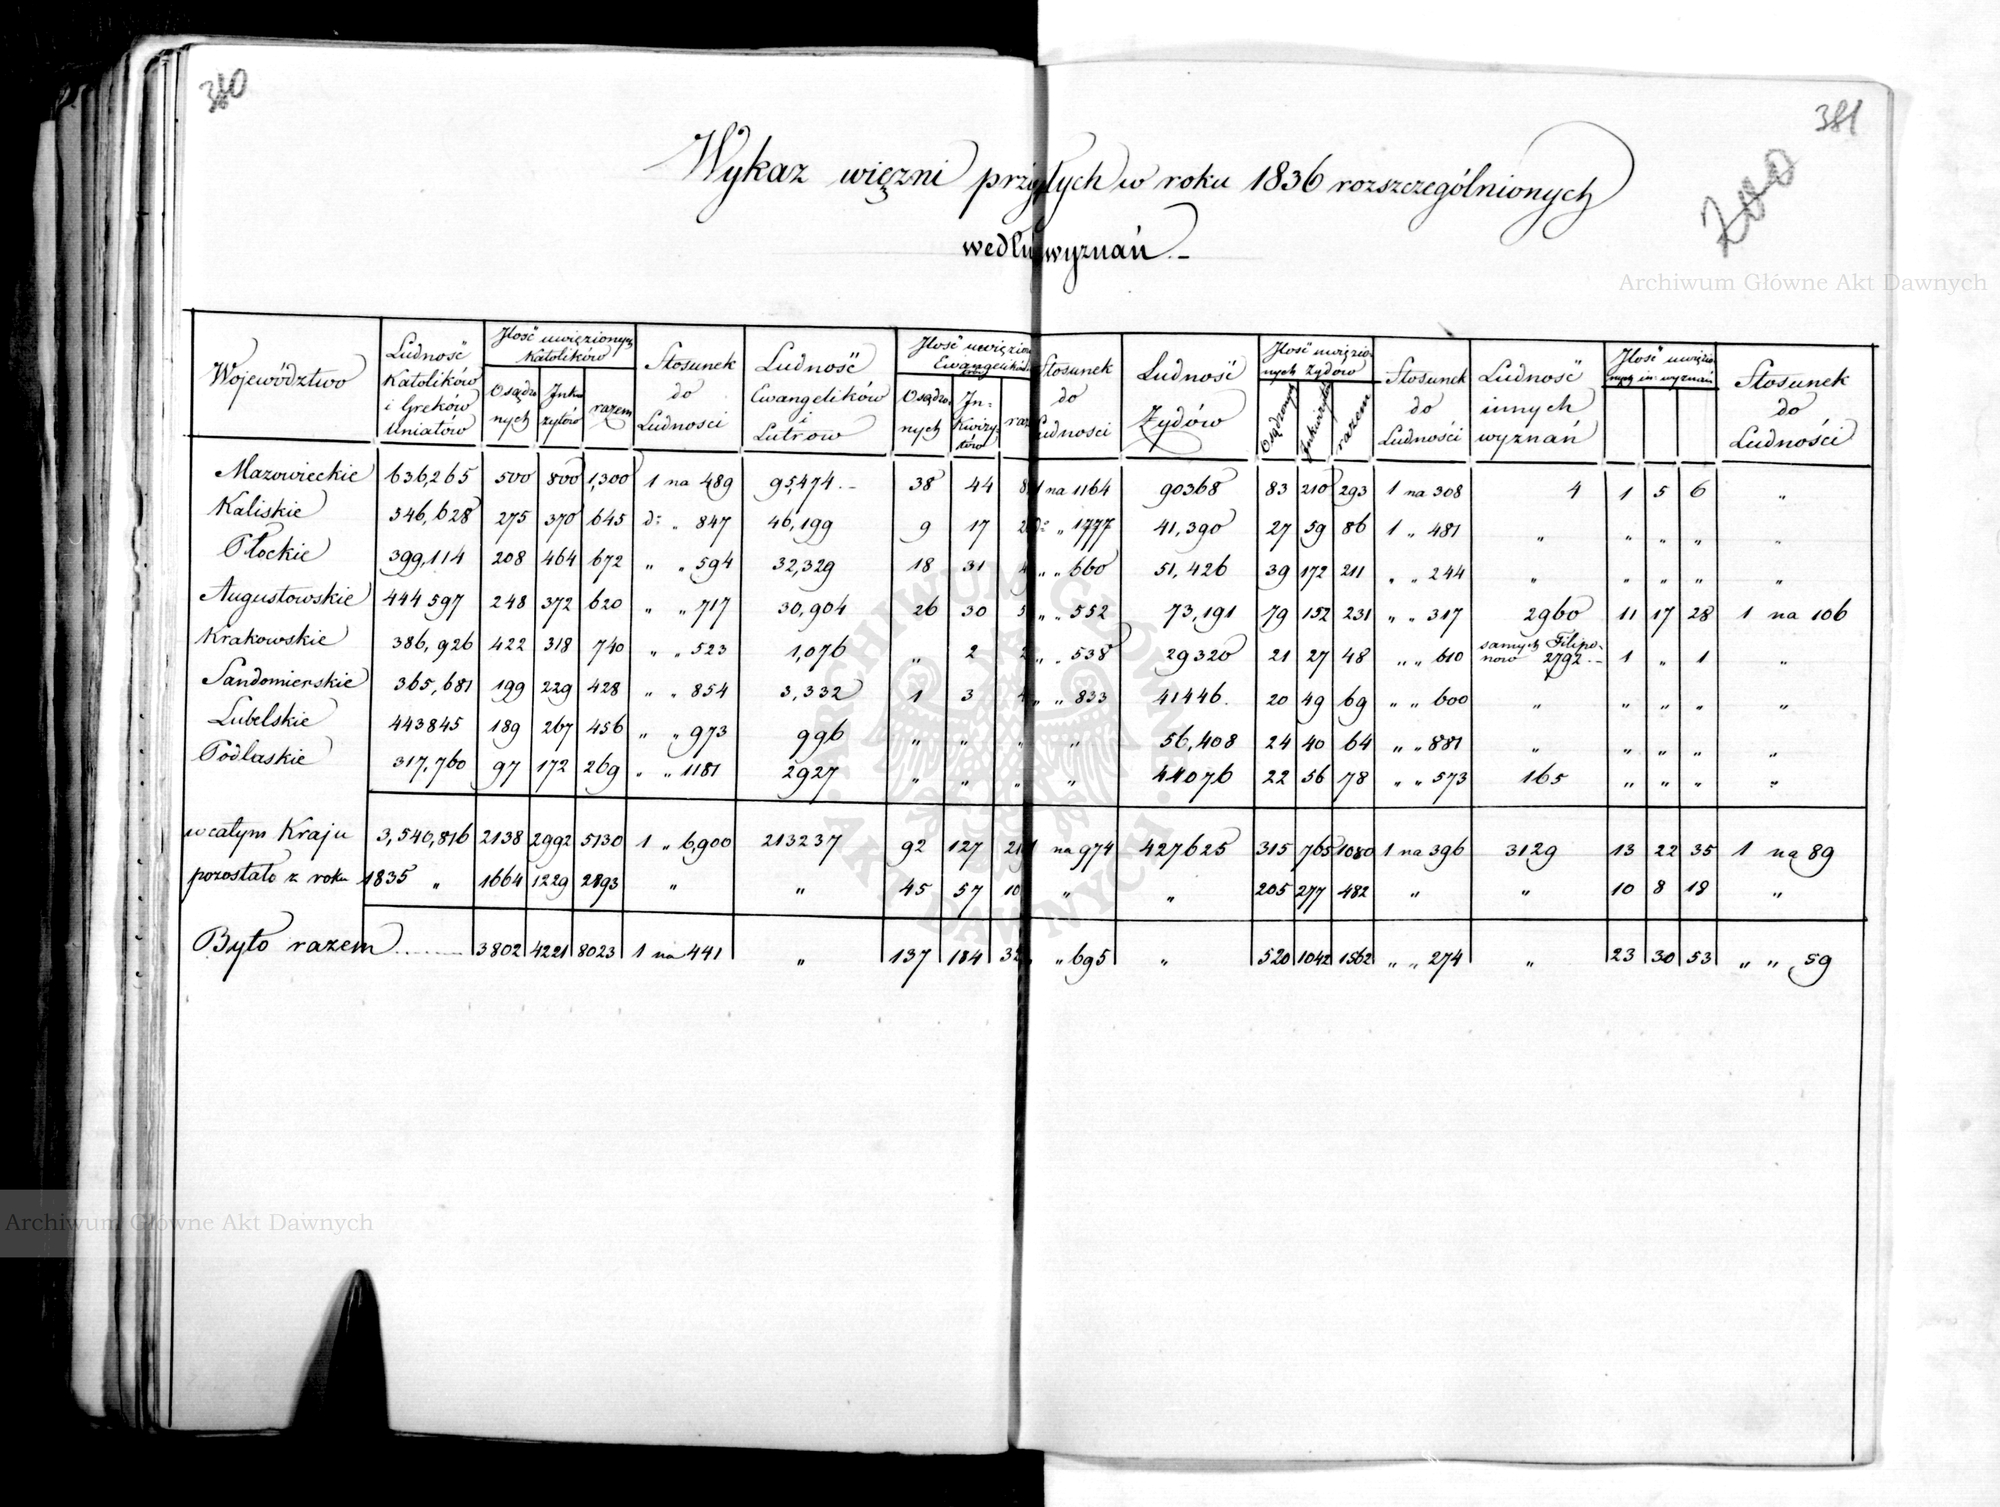 380
381
200
Wykaz więzni przybyłych w roku 1836 rozszczególnionych
według wyznań.–
Archiwum Główne Akt Dawnych
Województwo | Ludność Katolików i Greków Uniatów | Ilość uwięzionych Katolików | Stosunek do Ludności | Ludność Ewangelików i Lutrow | Ilość uwięzio Ewangelików | Stosunek do Ludności | Ludność Żydów | Ilość uwięzionych Żydów | Stosunek do Ludności | Ludność innych wyznań | Ilość uwięzionych in: wyznań | Stosunek do Ludności
Osądzonych | Inkwizytów | razem | Osądzonych | Inkwizytów | raz | Osądzonych | Inkwizytów | razem
Mazowieckie 636,265 500 800 1,300 1 na 489 95,474.– 38 44 8 1 na 1164 90368 83 210 293 1 na 308 4 1 5 6 "
Kaliskie 546,628 275 370 645 d: " 847 46,199 9 17 2 d: " 1777 41,390 27 59 86 1 " 481 " " " " "
Płockie 399,114 208 464 672 " " 594 32,329 18 31 4 " " 660 51,426 39 172 211 " " 244 " " " " "
Augustowskie 444 597 248 372 620 " " 717 30,904 26 30 5 " " 552 73,191 79 152 231 " " 317 2960 11 17 28 1 na 106
Krakowskie 386,926 422 318 740 " " 523 1,076 " 2 2 " " 538 29320 21 27 48 " " 610 samych Filiponow 2792.– 1 " 1 "
Sandomierskie 365,681 199 229 428 " " 854 3,332 1 3 4 " " 833 41446. 20 49 69 " " 600 " " " " "
Lubelskie 443845 189 267 456 " " 973 996 " " " " 56,408 24 40 64 " " 881 " " " " "
Podlaskie 317,760 97 172 269 " " 1181 2927 " " " " 44076 22 56 78 " " 573 165 " " " "
w całym Kraju 3,540,816 2138 2992 5130 1 " 6,900 213237 92 127 219 1 na 974 427625 315 765 1080 1 na 396 3129 13 22 35 1 na 89
pozostało z roku 1835 " 1664 1229 2893 " " 45 57 10 " " 205 277 482 " " 10 8 18 "
Było razem 3802 4221 8023 1 na 441 " 137 184 32 " " 695 " 520 1042 1562 " " 274 " 23 30 53 " " 59
ARCHIWUM GŁÓWNE
AKT DAWNYCH
Archiwum Główne Akt Dawnych